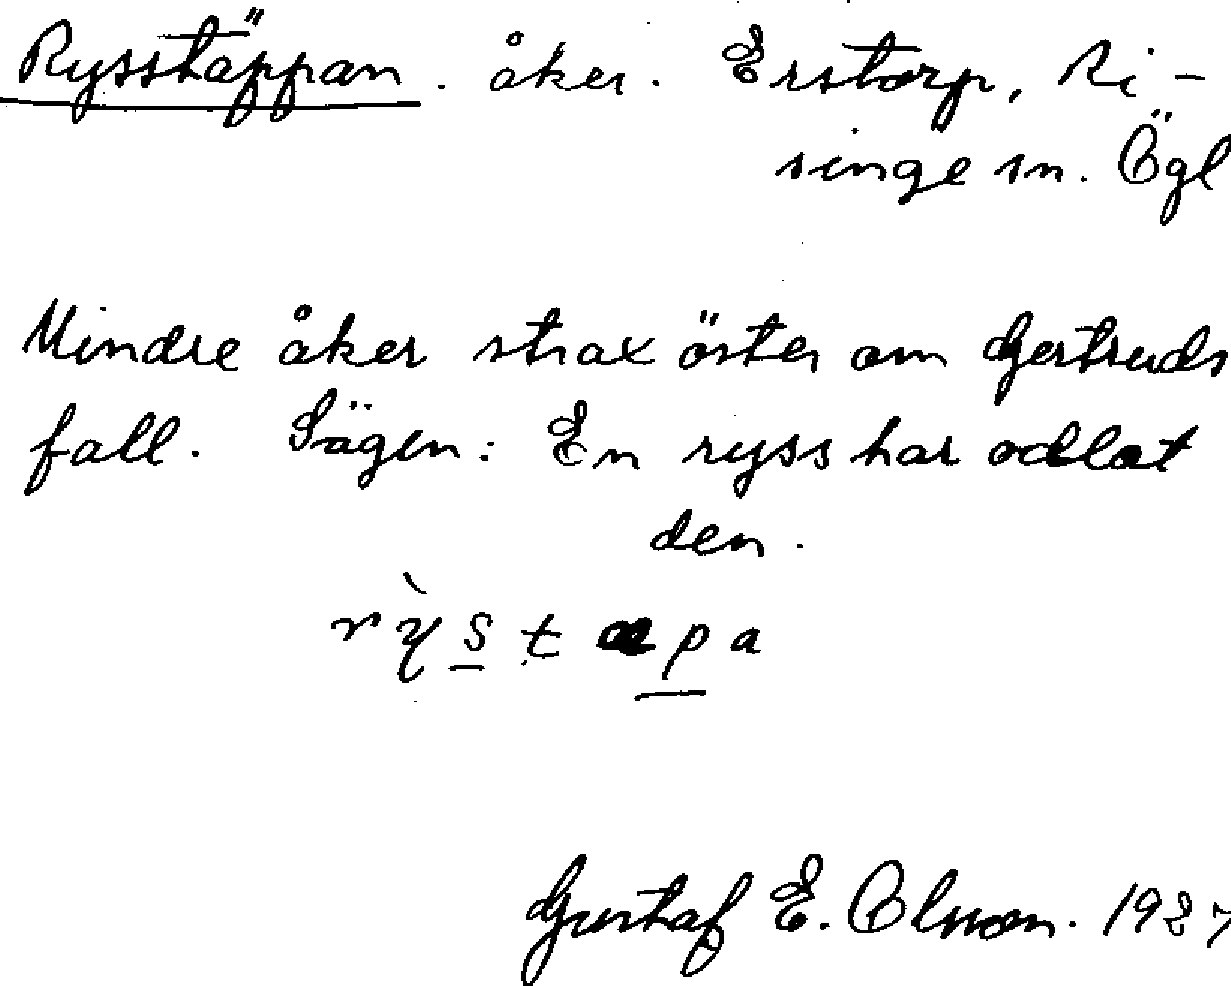 Rysstäppan. åker. Erstorp, Ri-
singe sn. Ögl
Mindre åker strax öster om Gertruds
fall. Sägen: En ryss har odlat
den.
rỳs̲tæp̲a
Gustaf E. Olsson. 1937